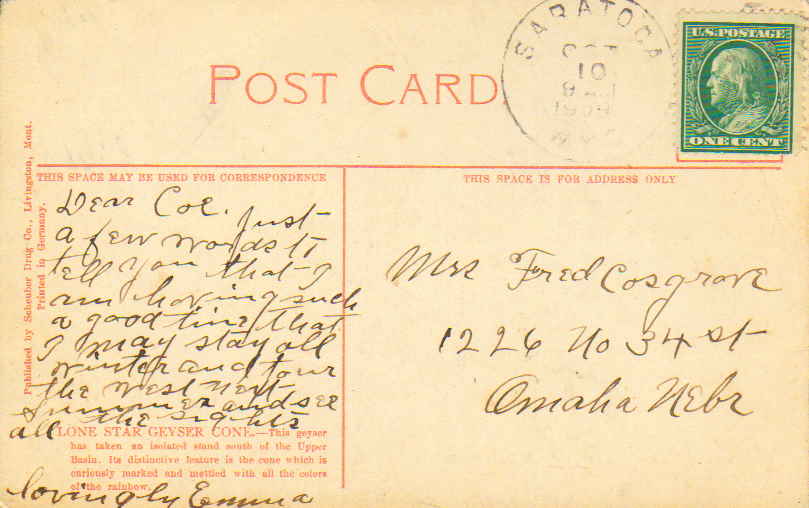 SARATOGA
OCT
10
1909
U.S. POSTAGE
ONE CENT
POST CARD.
THIS SPACE MAY BE USED FOR CORRESPONDENCE
THIS SPACE IS FOR ADDRESS ONLY
Published by Scheuber Drug Co., Livingston, Mont.
Printed in Germany.
Dear Coe. Just
a few words to
tell you that I
am having such
a good time that
I may stay all
winter and tour
the west next
summer and see
all the sights
LONE STAR GEYSER CONE.—This geyser
has taken an isolated stand south of the Upper
Basin. Its distinctive feature is the cone which is
curiously marked and mottled with all the colors
of the rainbow.
lovingly Emma
Mrs Fred Cosgrove
1226 No 34 st
Omaha Nebr